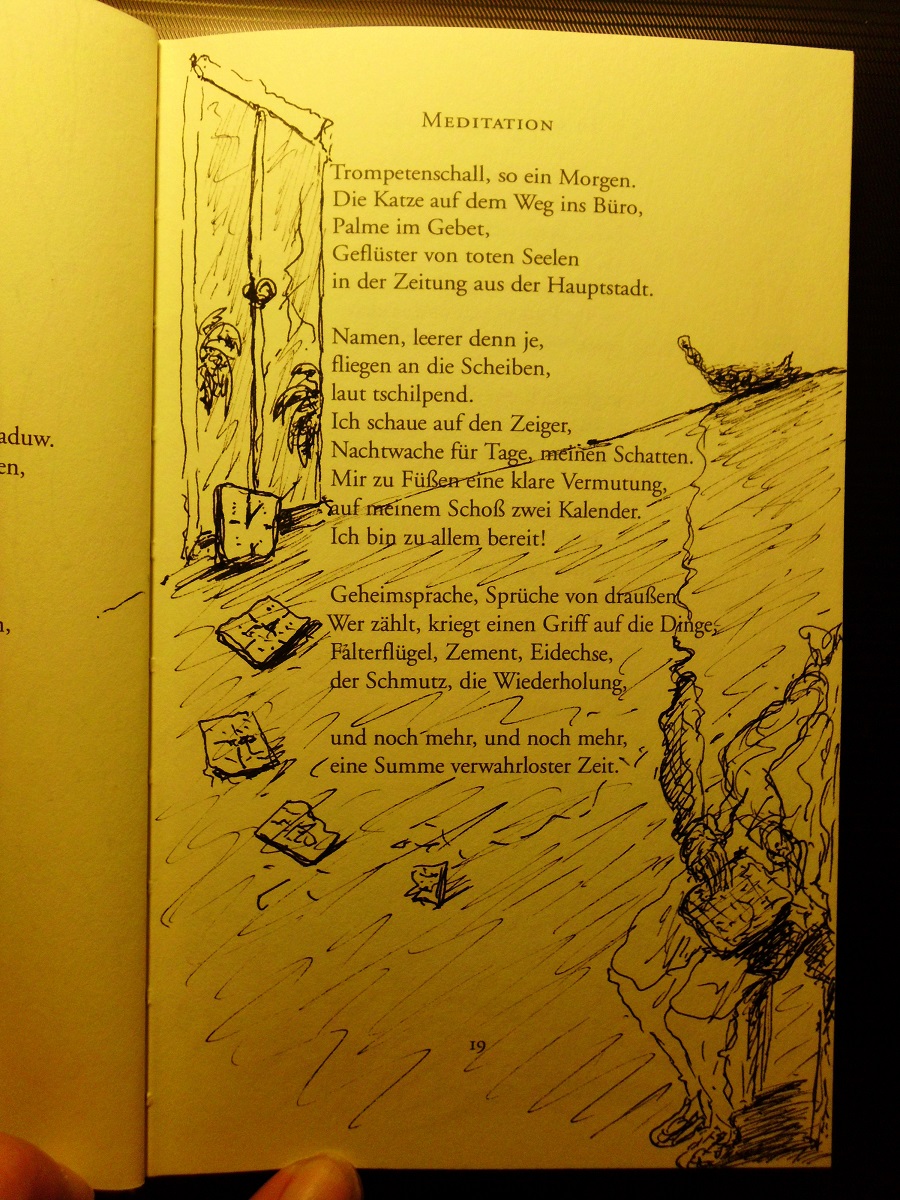 aduw.
en,
n,
MEDITATION
Trompetenschall, so ein Morgen.
Die Katze auf dem Weg ins Büro,
Palme im Gebet,
Geflüster von toten Seelen
in der Zeitung aus der Hauptstadt.
Namen, leerer denn je,
fliegen an die Scheiben,
laut tschilpend.
Ich schaue auf den Zeiger,
Nachtwache für Tage, meinen Schatten.
Mir zu Füßen eine klare Vermutung,
auf meinem Schoß zwei Kalender.
Ich bin zu allem bereit!
Geheimsprache, Sprüche von draußen.
Wer zählt, kriegt einen Griff auf die Dinge,
Falterflügel, Zement, Eidechse,
der Schmutz, die Wiederholung,
und noch mehr, und noch mehr,
eine Summe verwahrloster Zeit.
19